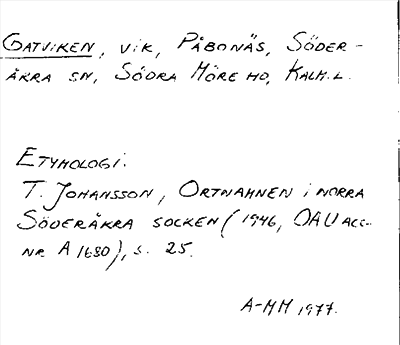 GATVIKEN, VIK, PÅBONÄS, SÖDER-
ÅKRA SN, SÖDRA MÖRE HD, KALM. L.
ETYMOLOGI:
T. JOHANSSON, ORTNAMNEN I NORRA
SÖDERÅKRA SOCKEN (1946, OAU ACC-
NR A 1680), S. 25.
A-MM 1977.